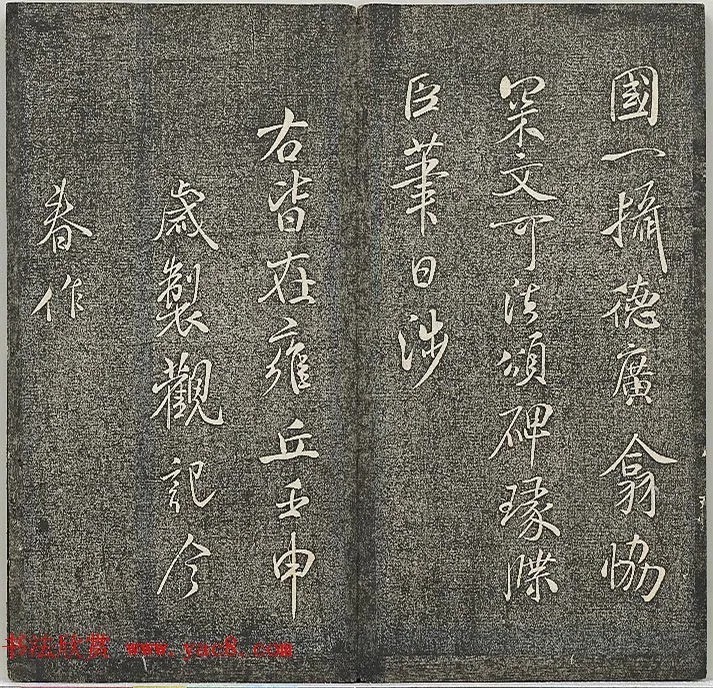 國一攝德廣翕協
罙文可法頌碑瑑牒
臣筆日涉
右皆在雍丘壬申
歲製觀記今
春作
书法欣赏 www.yac8.com